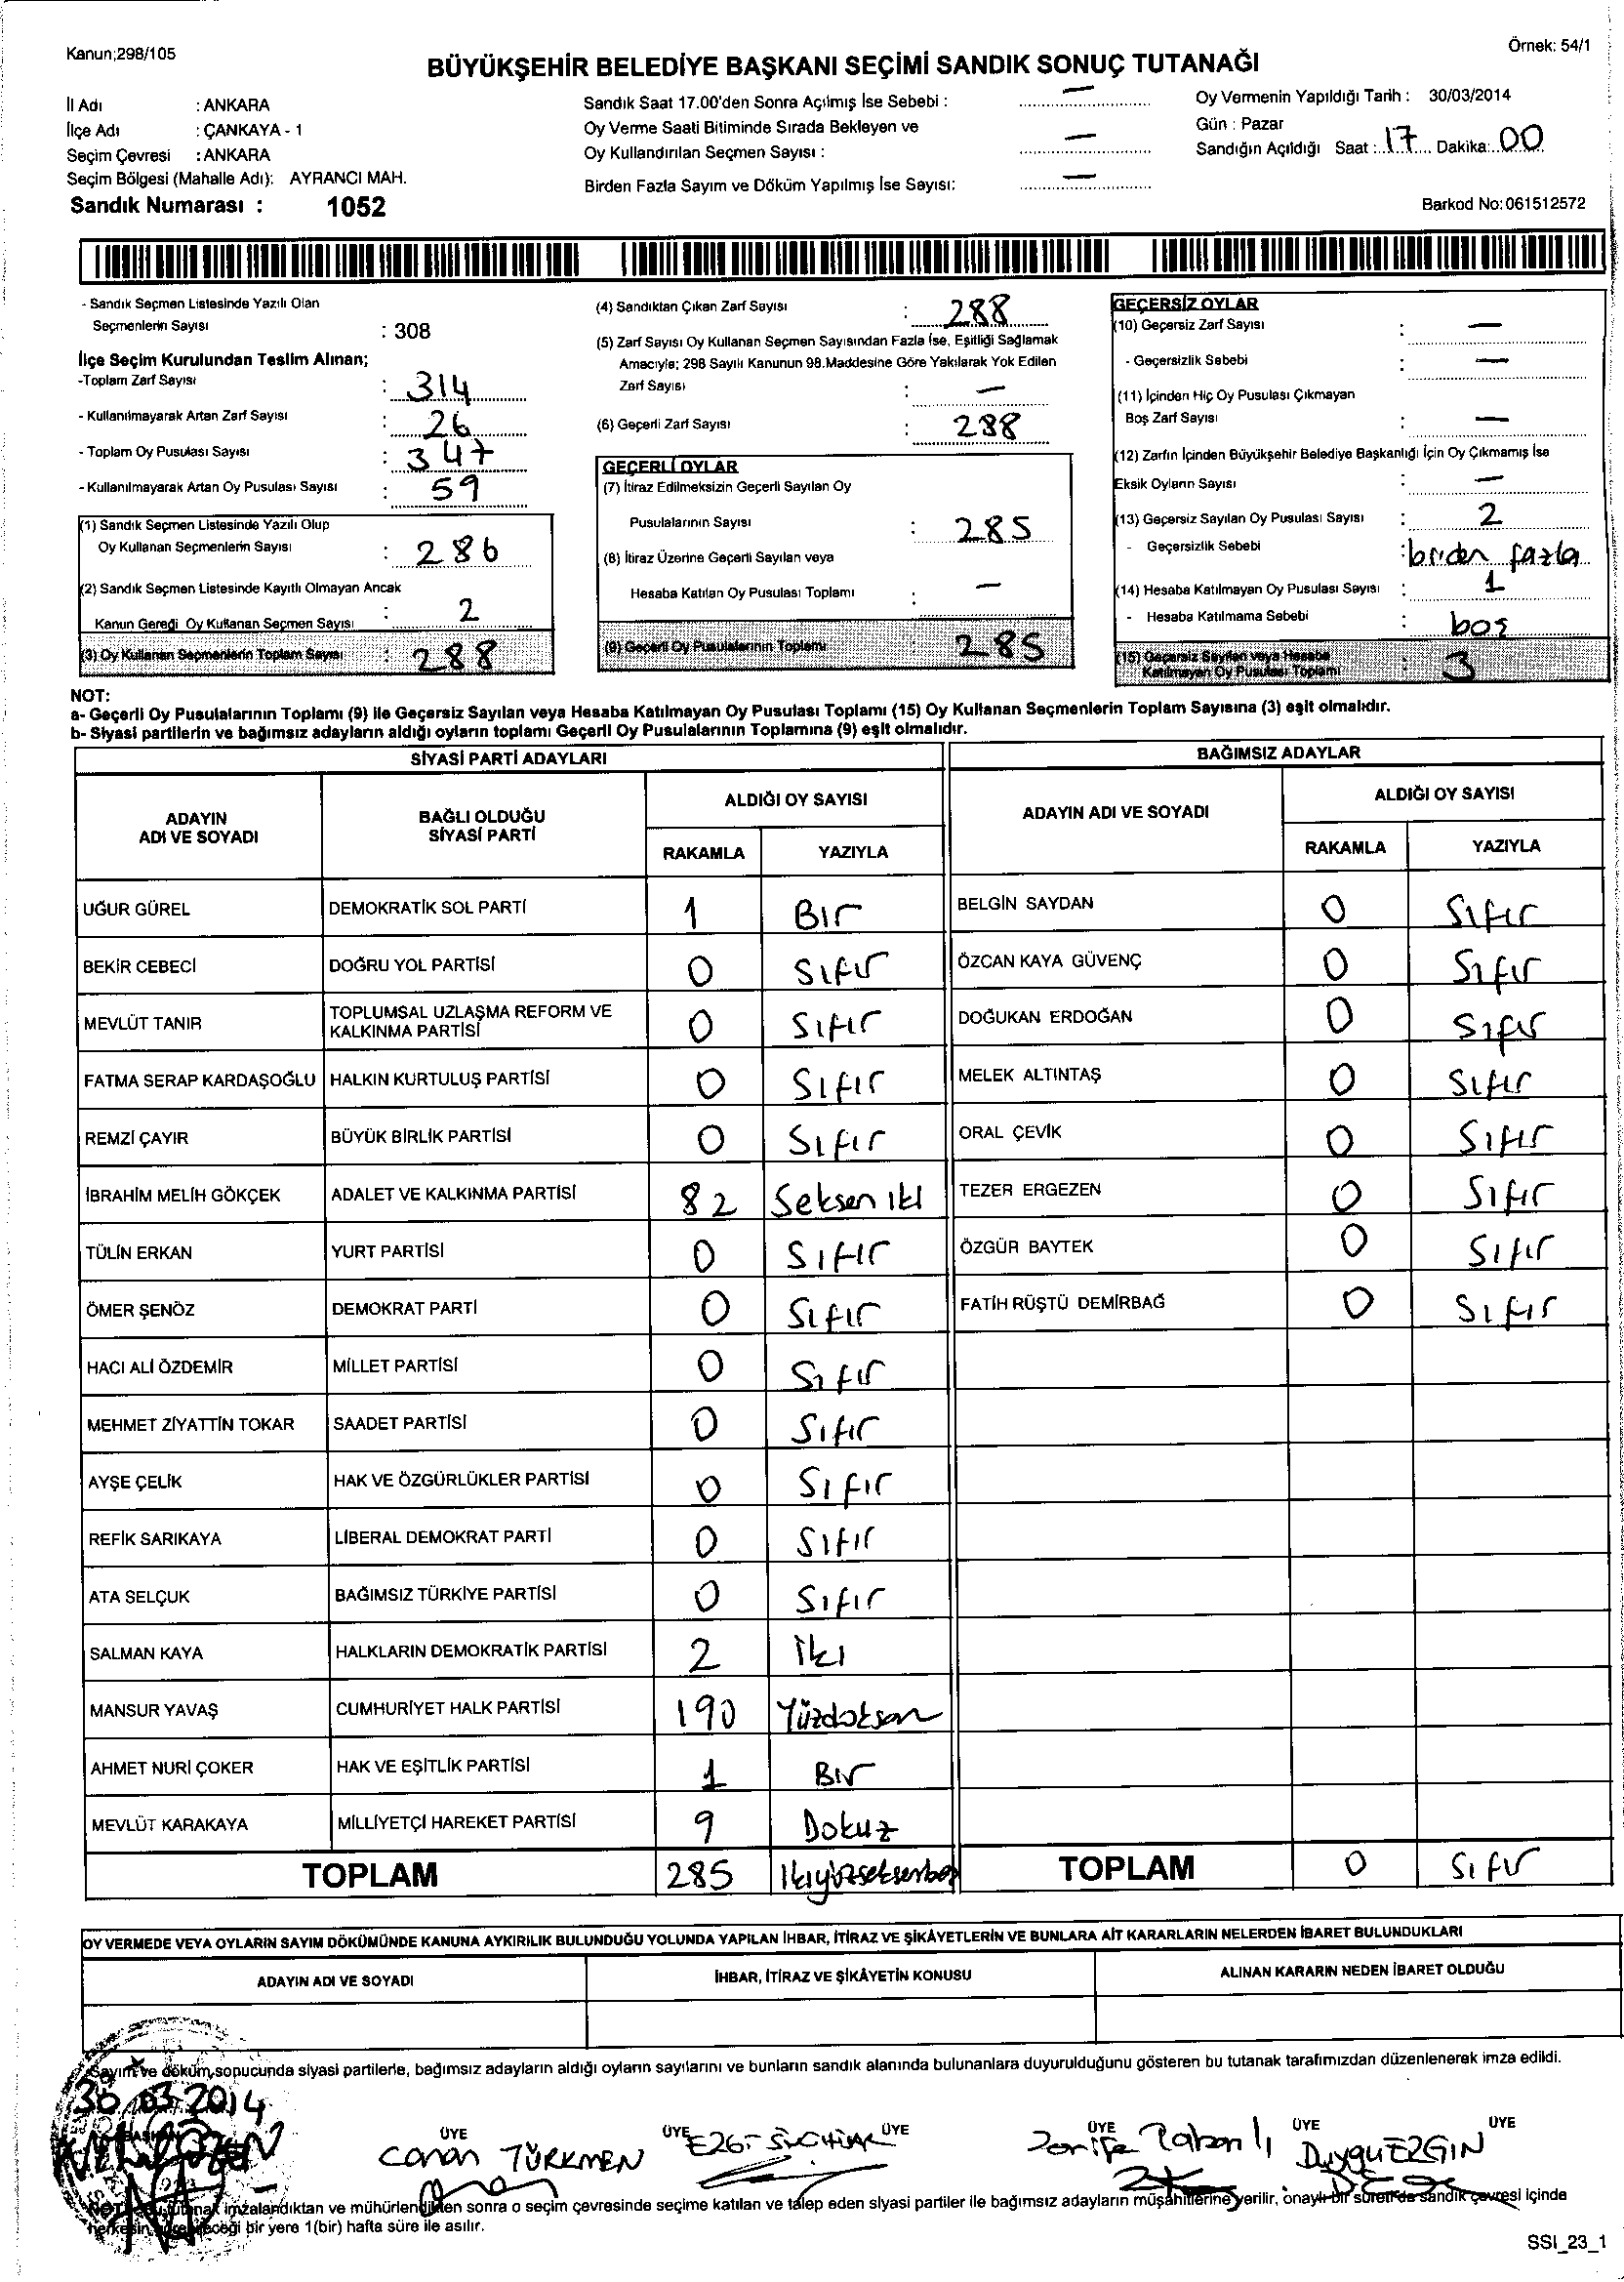 Kanun;298/105
Örnek: 54/1
BÜYÜKŞEHİR BELEDİYE BAŞKANI SEÇİMİ SANDIK SONUÇ TUTANAĞI
İl Adı : ANKARA
İlçe Adı : ÇANKAYA - 1
Seçim Çevresi : ANKARA
Seçim Bölgesi (Mahalle Adı): AYRANCI MAH.
Sandık Numarası : 1052
Sandık Saat 17.00'den Sonra Açılmış İse Sebebi : —
Oy Verme Saati Bitiminde Sırada Bekleyen ve
Oy Kullandırılan Seçmen Sayısı : —
Birden Fazla Sayım ve Döküm Yapılmış İse Sayısı: —
Oy Vermenin Yapıldığı Tarih : 30/03/2014
Gün : Pazar
Sandığın Açıldığı Saat : 17 Dakika: 00
Barkod No: 061512572
- Sandık Seçmen Listesinde Yazılı Olan
Seçmenlerin Sayısı : 308
İlçe Seçim Kurulundan Teslim Alınan;
-Toplam Zarf Sayısı : 314
- Kullanılmayarak Artan Zarf Sayısı : 26
- Toplam Oy Pusulası Sayısı : 347
- Kullanılmayarak Artan Oy Pusulası Sayısı : 59
(1) Sandık Seçmen Listesinde Yazılı Olup
Oy Kullanan Seçmenlerin Sayısı : 286
(2) Sandık Seçmen Listesinde Kayıtlı Olmayan Ancak
Kanun Gereği Oy Kullanan Seçmen Sayısı : 2
(3) Oy Kullanan Seçmenlerin Toplam Sayısı : 288
(4) Sandıktan Çıkan Zarf Sayısı : 288
(5) Zarf Sayısı Oy Kullanan Seçmen Sayısından Fazla İse, Eşitliği Sağlamak
Amacıyla; 298 Sayılı Kanunun 98.Maddesine Göre Yakılarak Yok Edilen
Zarf Sayısı : —
(6) Geçerli Zarf Sayısı : 288
GEÇERLİ OYLAR
(7) İtiraz Edilmeksizin Geçerli Sayılan Oy
Pusulalarının Sayısı : 285
(8) İtiraz Üzerine Geçerli Sayılan veya
Hesaba Katılan Oy Pusulası Toplamı : —
(9) Geçerli Oy Pusulalarının Toplamı : 285
GEÇERSİZ OYLAR
(10) Geçersiz Zarf Sayısı : —
- Geçersizlik Sebebi : —
(11) İçinden Hiç Oy Pusulası Çıkmayan
Boş Zarf Sayısı : —
(12) Zarfın İçinden Büyükşehir Belediye Başkanlığı İçin Oy Çıkmamış İse
Eksik Oyların Sayısı : —
(13) Geçersiz Sayılan Oy Pusulası Sayısı : 2
- Geçersizlik Sebebi : birden fazla
(14) Hesaba Katılmayan Oy Pusulası Sayısı : 1
- Hesaba Katılmama Sebebi : boş
(15) Geçersiz Sayılan veya Hesaba
Katılmayan Oy Pusulası Toplamı : 3
NOT:
a- Geçerli Oy Pusulalarının Toplamı (9) ile Geçersiz Sayılan veya Hesaba Katılmayan Oy Pusulası Toplamı (15) Oy Kullanan Seçmenlerin Toplam Sayısına (3) eşit olmalıdır.
b- Siyasi partilerin ve bağımsız adayların aldığı oyların toplamı Geçerli Oy Pusulalarının Toplamına (9) eşit olmalıdır.
SİYASİ PARTİ ADAYLARI
ADAYIN
ADI VE SOYADI
BAĞLI OLDUĞU
SİYASİ PARTİ
ALDIĞI OY SAYISI
RAKAMLA YAZIYLA
UĞUR GÜREL DEMOKRATİK SOL PARTİ 1 Bır
BEKİR CEBECİ DOĞRU YOL PARTİSİ 0 Sıfır
MEVLÜT TANIR TOPLUMSAL UZLAŞMA REFORM VE
KALKINMA PARTİSİ 0 Sıfır
FATMA SERAP KARDAŞOĞLU HALKIN KURTULUŞ PARTİSİ 0 Sıfır
REMZİ ÇAYIR BÜYÜK BİRLİK PARTİSİ 0 Sıfır
İBRAHİM MELİH GÖKÇEK ADALET VE KALKINMA PARTİSİ 82 Seksen ıkı
TÜLİN ERKAN YURT PARTİSİ 0 Sıfır
ÖMER ŞENÖZ DEMOKRAT PARTİ 0 Sıfır
HACI ALİ ÖZDEMİR MİLLET PARTİSİ 0 Sıfır
MEHMET ZİYATTİN TOKAR SAADET PARTİSİ 0 Sıfır
AYŞE ÇELİK HAK VE ÖZGÜRLÜKLER PARTİSİ 0 Sıfır
REFİK SARIKAYA LİBERAL DEMOKRAT PARTİ 0 Sıfır
ATA SELÇUK BAĞIMSIZ TÜRKİYE PARTİSİ 0 Sıfır
SALMAN KAYA HALKLARIN DEMOKRATİK PARTİSİ 2 İkı
MANSUR YAVAŞ CUMHURİYET HALK PARTİSİ 190 Yüzdoksan
AHMET NURİ ÇOKER HAK VE EŞİTLİK PARTİSİ 1 Bır
MEVLÜT KARAKAYA MİLLİYETÇİ HAREKET PARTİSİ 9 Dokuz
TOPLAM 285 Ikıyüzseksenbeş
BAĞIMSIZ ADAYLAR
ADAYIN ADI VE SOYADI
ALDIĞI OY SAYISI
RAKAMLA YAZIYLA
BELGİN SAYDAN 0 Sıfır
ÖZCAN KAYA GÜVENÇ 0 Sıfır
DOĞUKAN ERDOĞAN 0 Sıfır
MELEK ALTINTAŞ 0 Sıfır
ORAL ÇEVİK 0 Sıfır
TEZER ERGEZEN 0 Sıfır
ÖZGÜR BAYTEK 0 Sıfır
FATİH RÜŞTÜ DEMİRBAĞ 0 Sıfır
TOPLAM 0 Sıfır
OY VERMEDE VEYA OYLARIN SAYIM DÖKÜMÜNDE KANUNA AYKIRILIK BULUNDUĞU YOLUNDA YAPILAN İHBAR, İTİRAZ VE ŞİKÂYETLERİN VE BUNLARA AİT KARARLARIN NELERDEN İBARET BULUNDUKLARI
ADAYIN ADI VE SOYADI
İHBAR, İTİRAZ VE ŞİKÂYETİN KONUSU
ALINAN KARARIN NEDEN İBARET OLDUĞU
Sayım ve döküm sonucunda siyasi partilerle, bağımsız adayların aldığı oyların sayılarını ve bunların sandık alanında bulunanlara duyurulduğunu gösteren bu tutanak tarafımızdan düzenlenerek imza edildi.
30.03.2014
BAŞKAN ÜYE ÜYE ÜYE ÜYE ÜYE ÜYE
Canan TÜRKMEN
Duygu EZGİN
NOT: Bu tutanak imzalandıktan ve mühürlendikten sonra o seçim çevresinde seçime katılan ve talep eden siyasi partiler ile bağımsız adayların müşahitlerine verilir, onaylı bir sureti de sandık çevresi içinde
herkesin görebileceği bir yere 1(bir) hafta süre ile asılır.
SSI_23_1